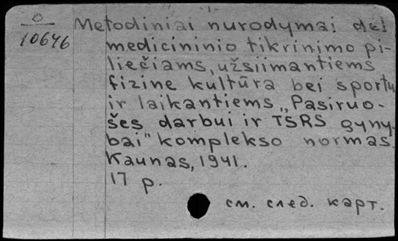 0
10646
Metodiniai nurodymai dėl
medicininio tikrinimo pi-
liečiams, užsiimantiems
fizine kultūra bei sportu
ir laikantiems „Pasiruo-
šęs darbui ir TSRS gyny-
bai" komplekso normas.
Kaunas, 1941.
17 p.
см. след. карт.